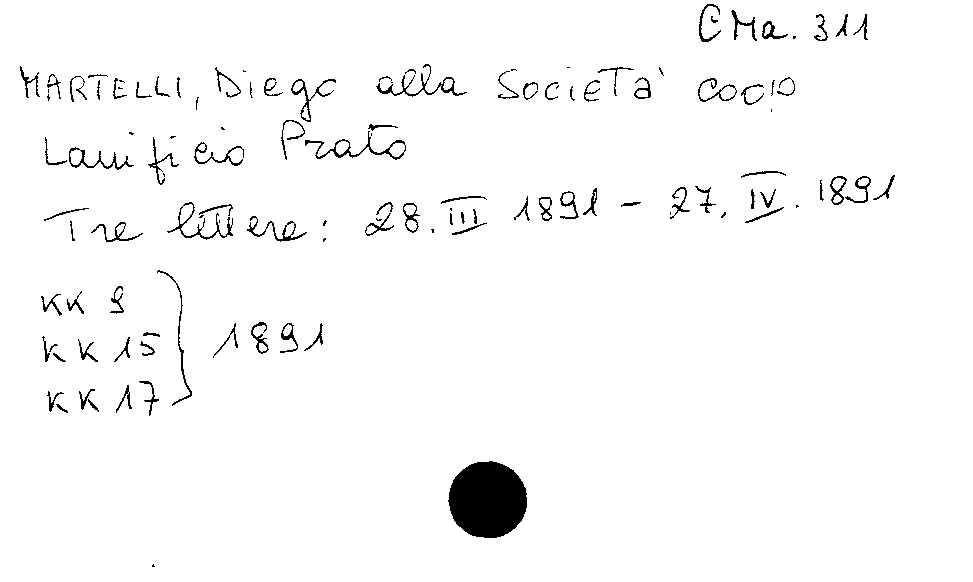 C Ma. 311
MARTELLI, Diego alla Società coop
Lanificio Prato
Tre lettere: 28. III 1891 - 27. IV. 1891
KK 9
KK 15
KK 17
1891